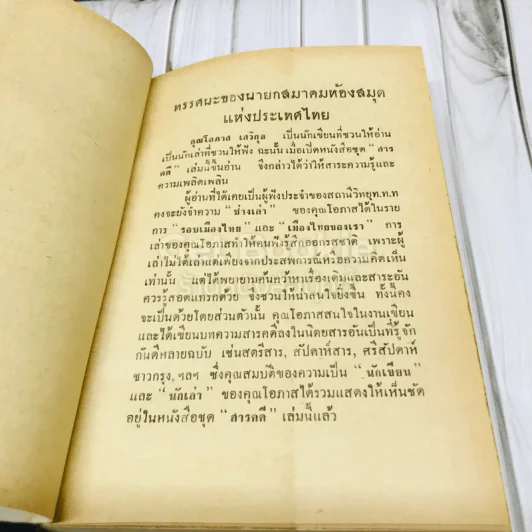 ทรรศนะของนายกสมาคมห้องสมุด
แห่งประเทศไทย
คุณโอภาส เสวิกุล เป็นนักเขียนที่ชวนให้อ่าน
เป็นนักเล่าที่ชวนให้ฟัง ฉะนั้น เมื่อเปิดหนังสือชุด “สาร
คดี” เล่มนี้ขึ้นอ่าน จึงกล่าวได้ว่าให้สาระความรู้และ
ความเพลิดเพลิน
ผู้อ่านที่ได้เคยเป็นผู้ฟังประจำของสถานีวิทยุ ท.ท.ท
คงจะยังจำความ “ช่างเล่า” ของคุณโอภาสได้ในราย
การ “รอบเมืองไทย” และ “เมืองไทยของเรา” การ
เล่าของคุณโอภาสทำให้คนฟังรู้สึกออกรสชาติ เพราะผู้
เล่าไม่ได้เล่าแต่เพียงจากประสพการณ์หรือความคิดเห็น
เท่านั้น แต่ได้พยายามค้นคว้าหาเรื่องเดิมและสาระอัน
ควรรู้สอดแทรกด้วย จึงชวนให้น่าสนใจยิ่งขึ้น ทั้งนี้คง
จะเป็นด้วยโดยส่วนตัวนั้น คุณโอภาสสนใจในงานเขียน
และได้เขียนบทความสารคดีลงในนิตยสารอันเป็นที่รู้จัก
กันดีหลายฉบับ เช่นสตรีสาร, สัปดาห์สาร, ศรีสัปดาห์
ชาวกรุง, ฯลฯ ซึ่งคุณสมบัติของความเป็น “นักเขียน”
และ “นักเล่า” ของคุณโอภาสได้รวมแสดงให้เห็นชัด
อยู่ในหนังสือชุด “สารคดี” เล่มนี้แล้ว